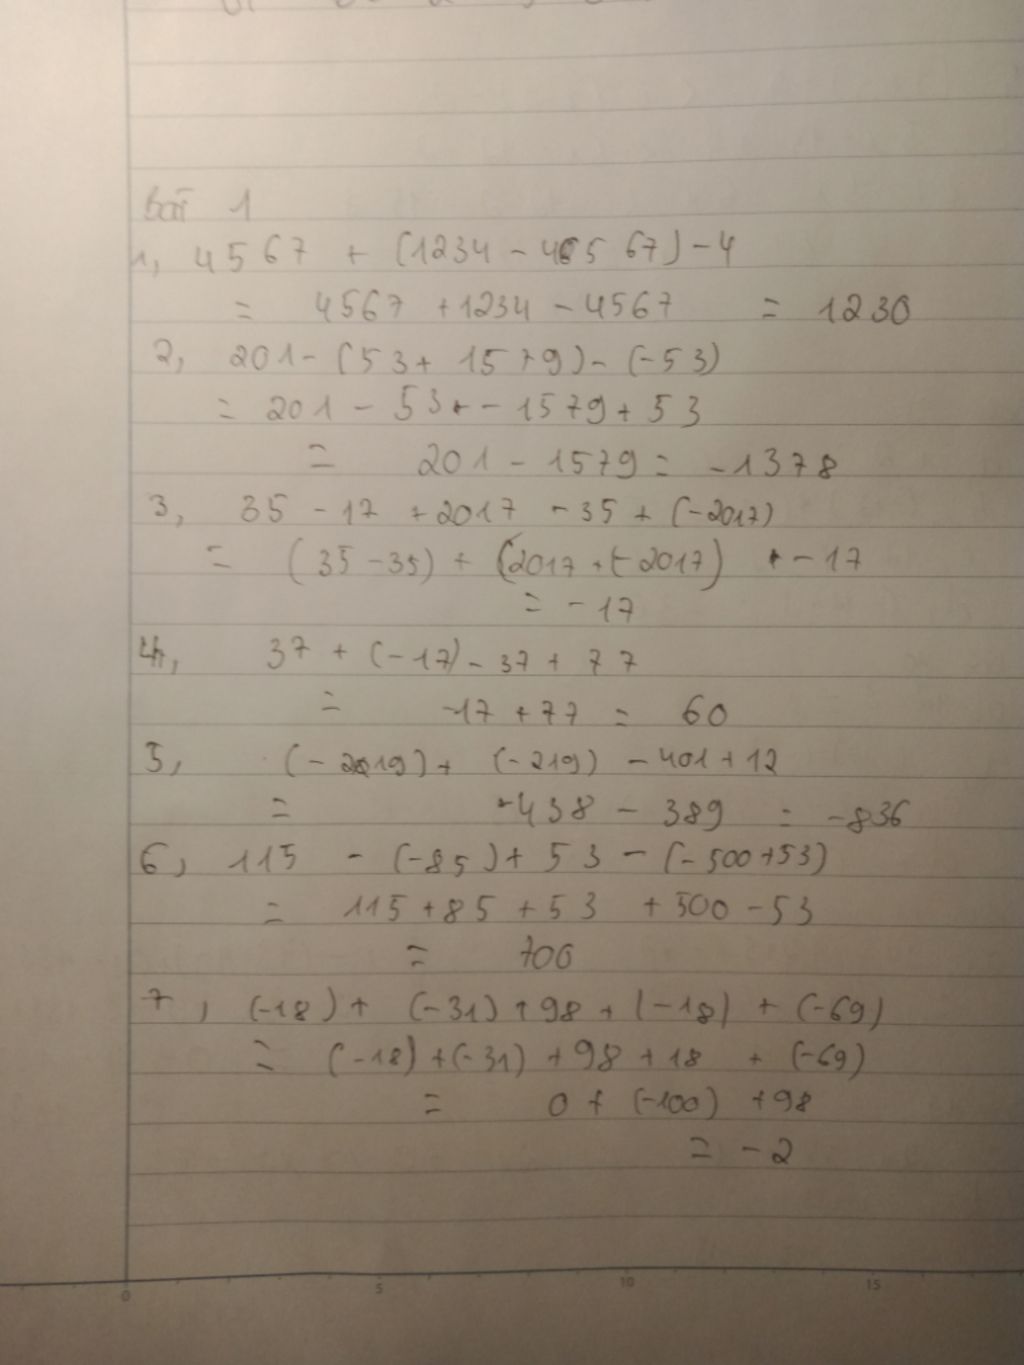 Bài 1
1, 4567 + (1234 - 4567) - 4
= 4567 + 1234 - 4567 = 1230
2, 201 - (53 + 1579) - (-53)
= 201 - 53 - 1579 + 53
= 201 - 1579 = -1378
3, 35 - 17 + 2017 - 35 + (-2017)
= (35 - 35) + (2017 + (-2017) - 17
= -17
4, 37 + (-17) - 37 + 77
= -17 + 77 = 60
5, (-219) + (-219) - 401 + 12
= -438 - 389 = -836
6, 115 - (-85) + 53 - (-500 + 53)
= 115 + 85 + 53 + 500 - 53
= 700
7, (-18) + (-31) + 98 + (-18) + (-69)
= (-18) + (-31) + 98 + 18 + (-69)
= 0 + (-100) + 98
= -2
0 5 10 15